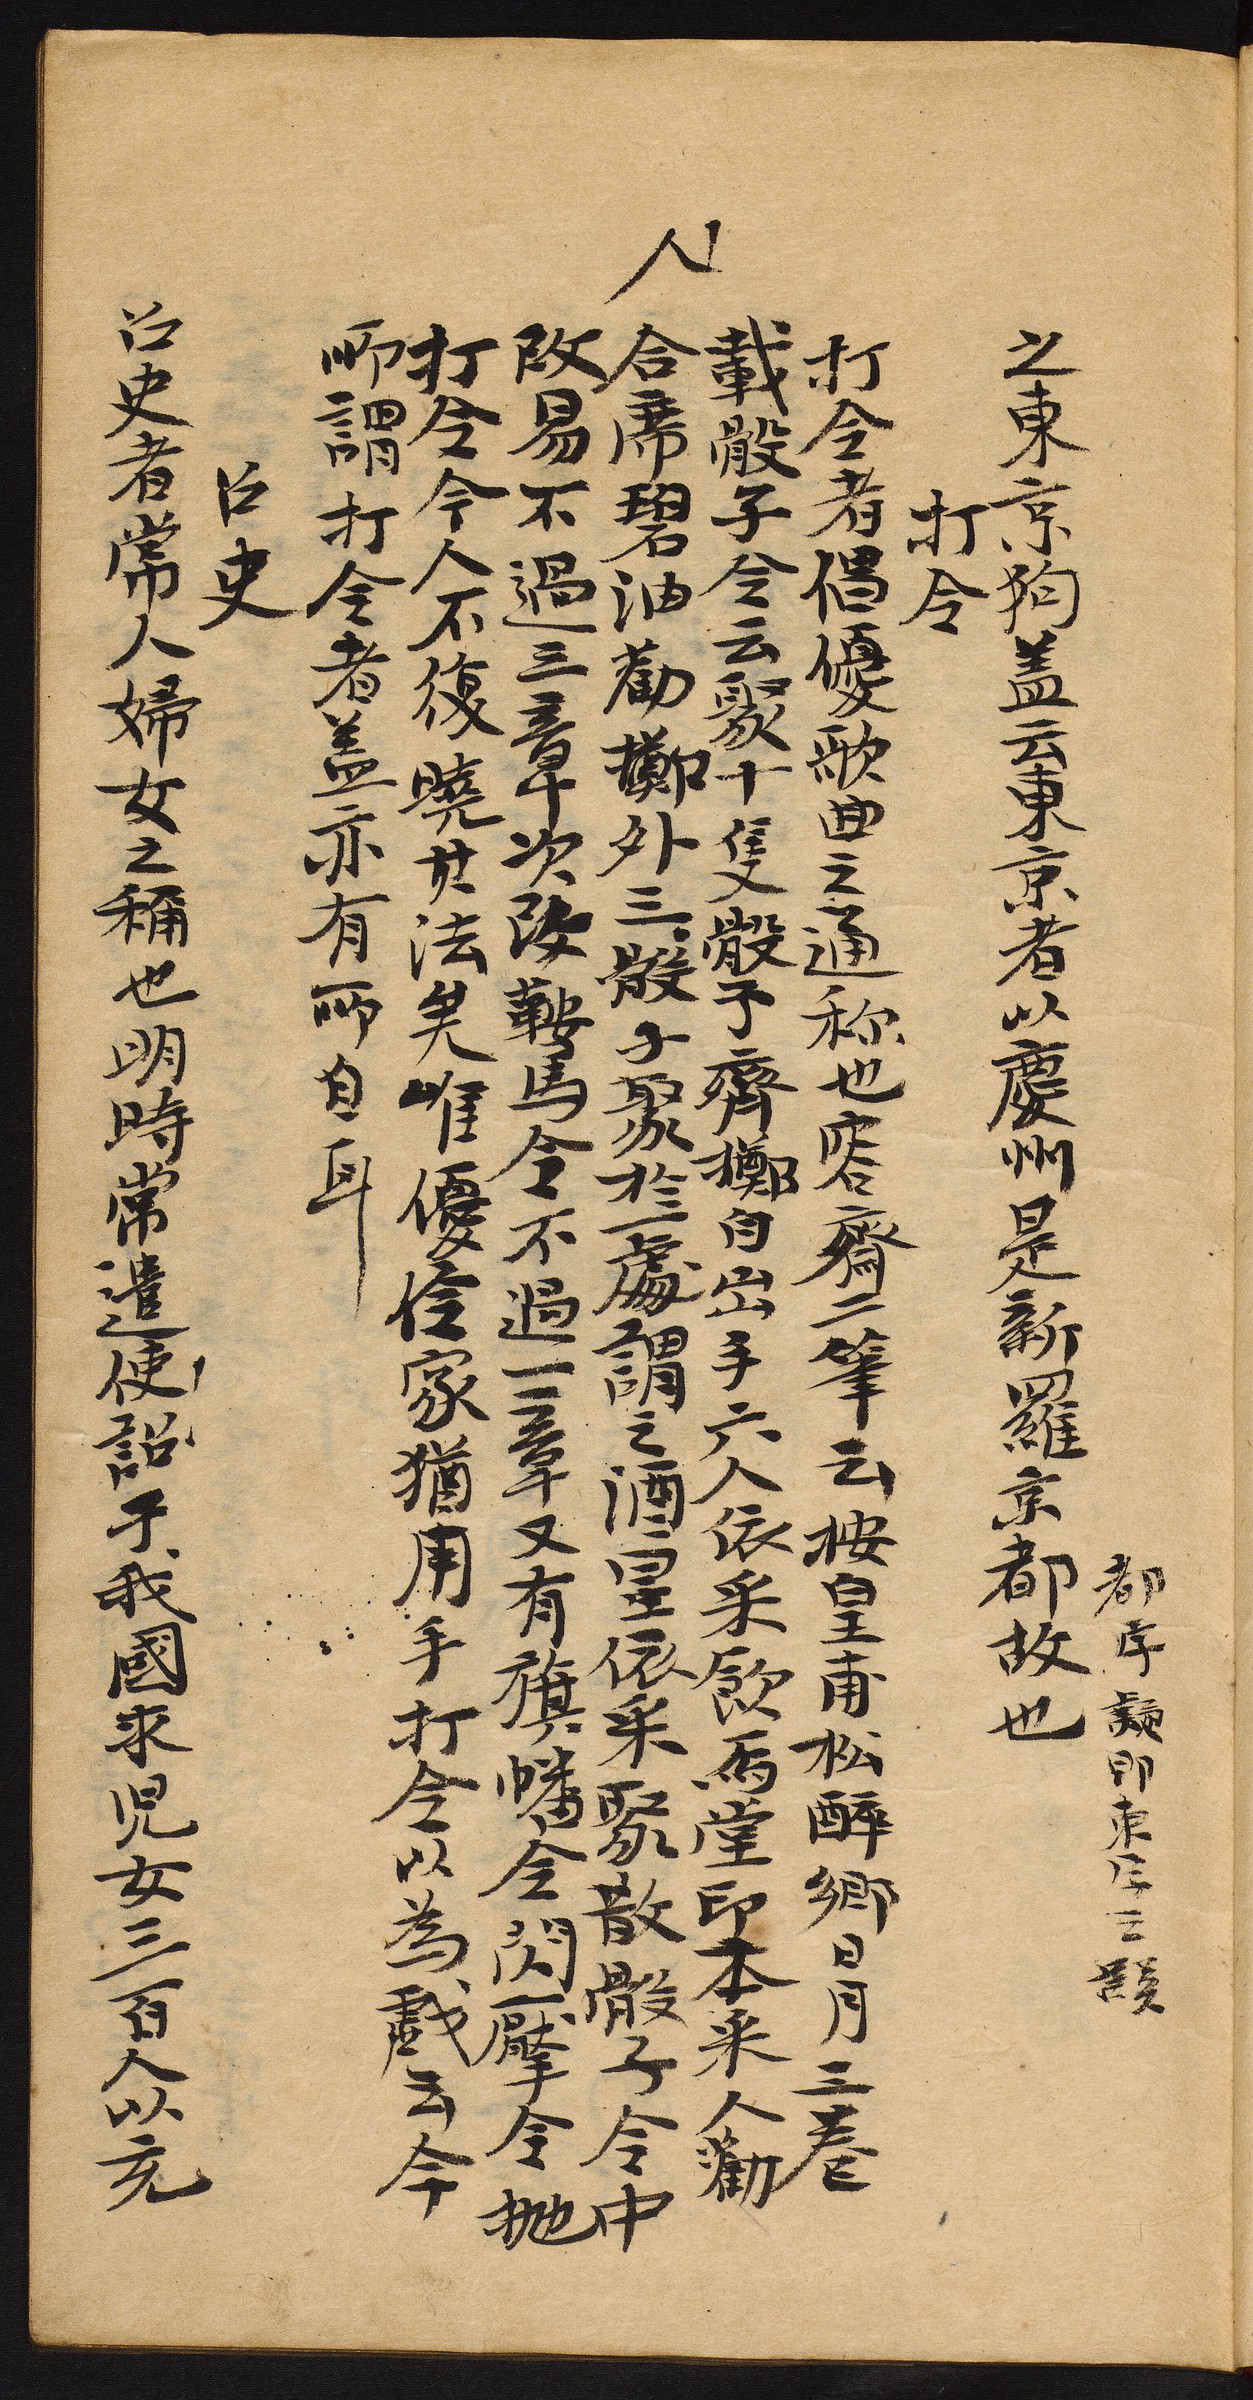 都序疑即東序之誤
之東京狗盖云東京者以慶州是新羅京都故也
打令
打令者倡優歌曲之通称也容齋二筆云按皇甫松醉鄉日月三卷
載骰子令云聚十隻骰子齊擲自出手六人依采飲焉堂印本采人勸
合席碧油勸擲外三骰子聚於一處謂之酒星依采聚散骰子令中
改易不過三章次改鞍馬令不過一章又有旗幡令閃擪令抛
打令今人不復曉其法矣唯優伶家猶用手打令以為戲云今
所謂打令者盖亦有所自耳
召史
召史者常人婦女之稱也明時常遣使詔于我國求児女三百人以充